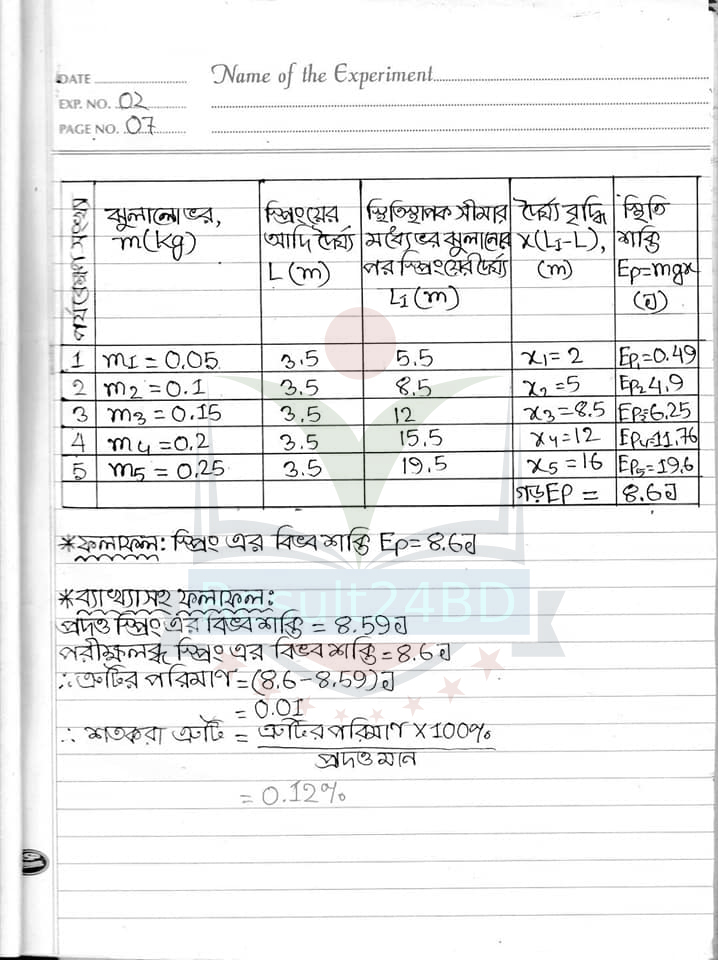 DATE
Name of the Experiment
EXP. NO. 02
PAGE NO. 07
পর্যবেক্ষণ সংখ্যা
ঝুলানো ভর, m(kg)
স্প্রিংয়ের আদি দৈর্ঘ্য L (m)
স্থিতিস্থাপক সীমার মধ্যে ভর ঝুলানোর পর স্প্রিংয়ের দৈর্ঘ্য L1 (m)
দৈর্ঘ্য বৃদ্ধি x(L1-L), (m)
স্থিতি শক্তি Ep=mgx (J)
1 m1 = 0.05 3.5 5.5 x1= 2 Ep1=0.49
2 m2 = 0.1 3.5 8.5 x2 =5 Ep2 4.9
3 m3 = 0.15 3.5 12 x3 =8.5 Ep3=6.25
4 m4 =0.2 3.5 15.5 x4=12 Ep4=11.76
5 m5 = 0.25 3.5 19.5 x5 =16 Ep5=19.6
গড় EP = 8.6J
*ফলাফল: স্প্রিং এর বিভব শক্তি Ep= 8.6J
*ব্যাখ্যাসহ ফলাফল:
Result24BD
প্রদত্ত স্প্রিং এর বিভব শক্তি = 8.59J
পরীক্ষলব্ধ স্প্রিং এর বিভব শক্তি=8.6J
∴ ত্রুটির পরিমাণ =(8.6-8.59)J
= 0.01
∴ শতকরা ত্রুটি = ত্রুটির পরিমাণ X 100%
প্রদত্ত মান
= 0.12%